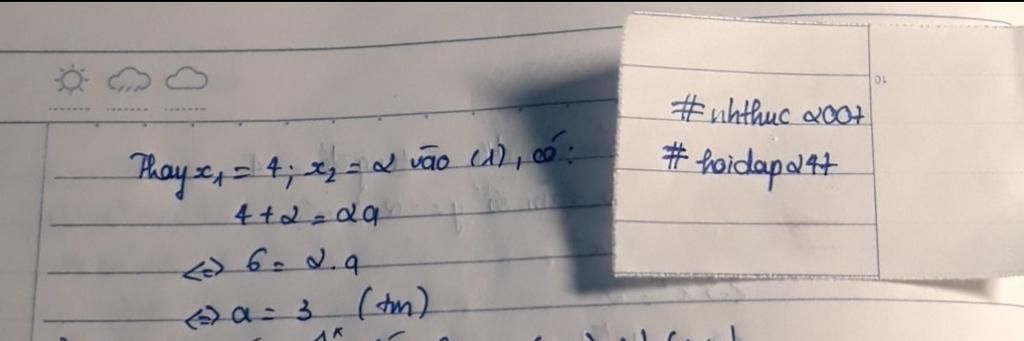 Thay x₁ = 4; x₂ = 2 vào (1), có:
4 + 2 = 2a
<=> 6 = 2.a
<=> a = 3 (tm)
#nhthuc2007
#hoidap247
10